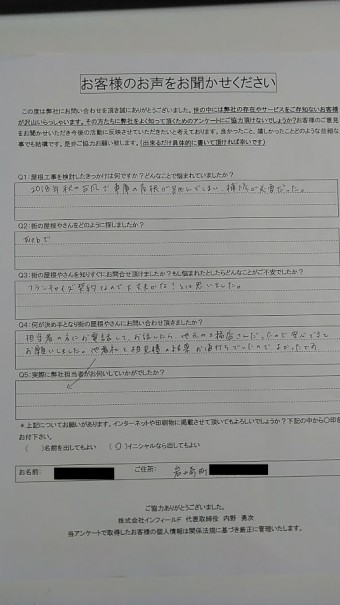 お客様のお声をお聞かせください
この度は弊社にお問い合わせを頂き誠にありがとうございました。世の中には弊社の存在やサービスをご存知ないお客様
が沢山いらっしゃいます。その方たちに弊社をよく知って頂くためのアンケートにご協力頂けないでしょうか?お客様のご意見
をお聞かせいただき今後の活動に反映させていただきたいと考えております。良かったこと、嬉しかったことどのような些細な
事でも結構です。是非ご協力お願い致します。(出来るだけ具体的に書いて頂ければ幸いです)
Q1:屋根工事を検討したきっかけは何ですか?どんなことで悩まれていましたか?
2018年秋の台風で車庫の屋根が
Q2:街の屋根やさんをどのように探しましたか?
Webで
Q3:街の屋根やさんを知りすぐにお問合せ頂けますか?もし悩まれたとしたらどんなことがご不安でしたか?
フランチャイズ契約なので大丈夫かな?とは思いました。
Q4:何が決め手となり街の屋根やさんにお問い合わせ頂きましたか?
担当者の方にお電話して、お話したら、地元の工務店さんだったので安心できて
お願いしました。他者和と相見積の結果がよかったです
Q5:実際に弊社担当者がお伺いしていかがでしたか?
*上記についてお願いがあります。インターネットや印刷物に掲載させて頂いてもよろしいでしょうか?下記の中から〇印を
お付下さい。
( )名前を出してもよい (〇)イニシャルなら出してもよい
お名前: ご住所:
ご協力ありがとうございました。
株式会社インフィールド 代表取締役 内野 勇次
当アンケートで取得したお客様の個人情報は関係法規に基づき厳正に管理いたします。